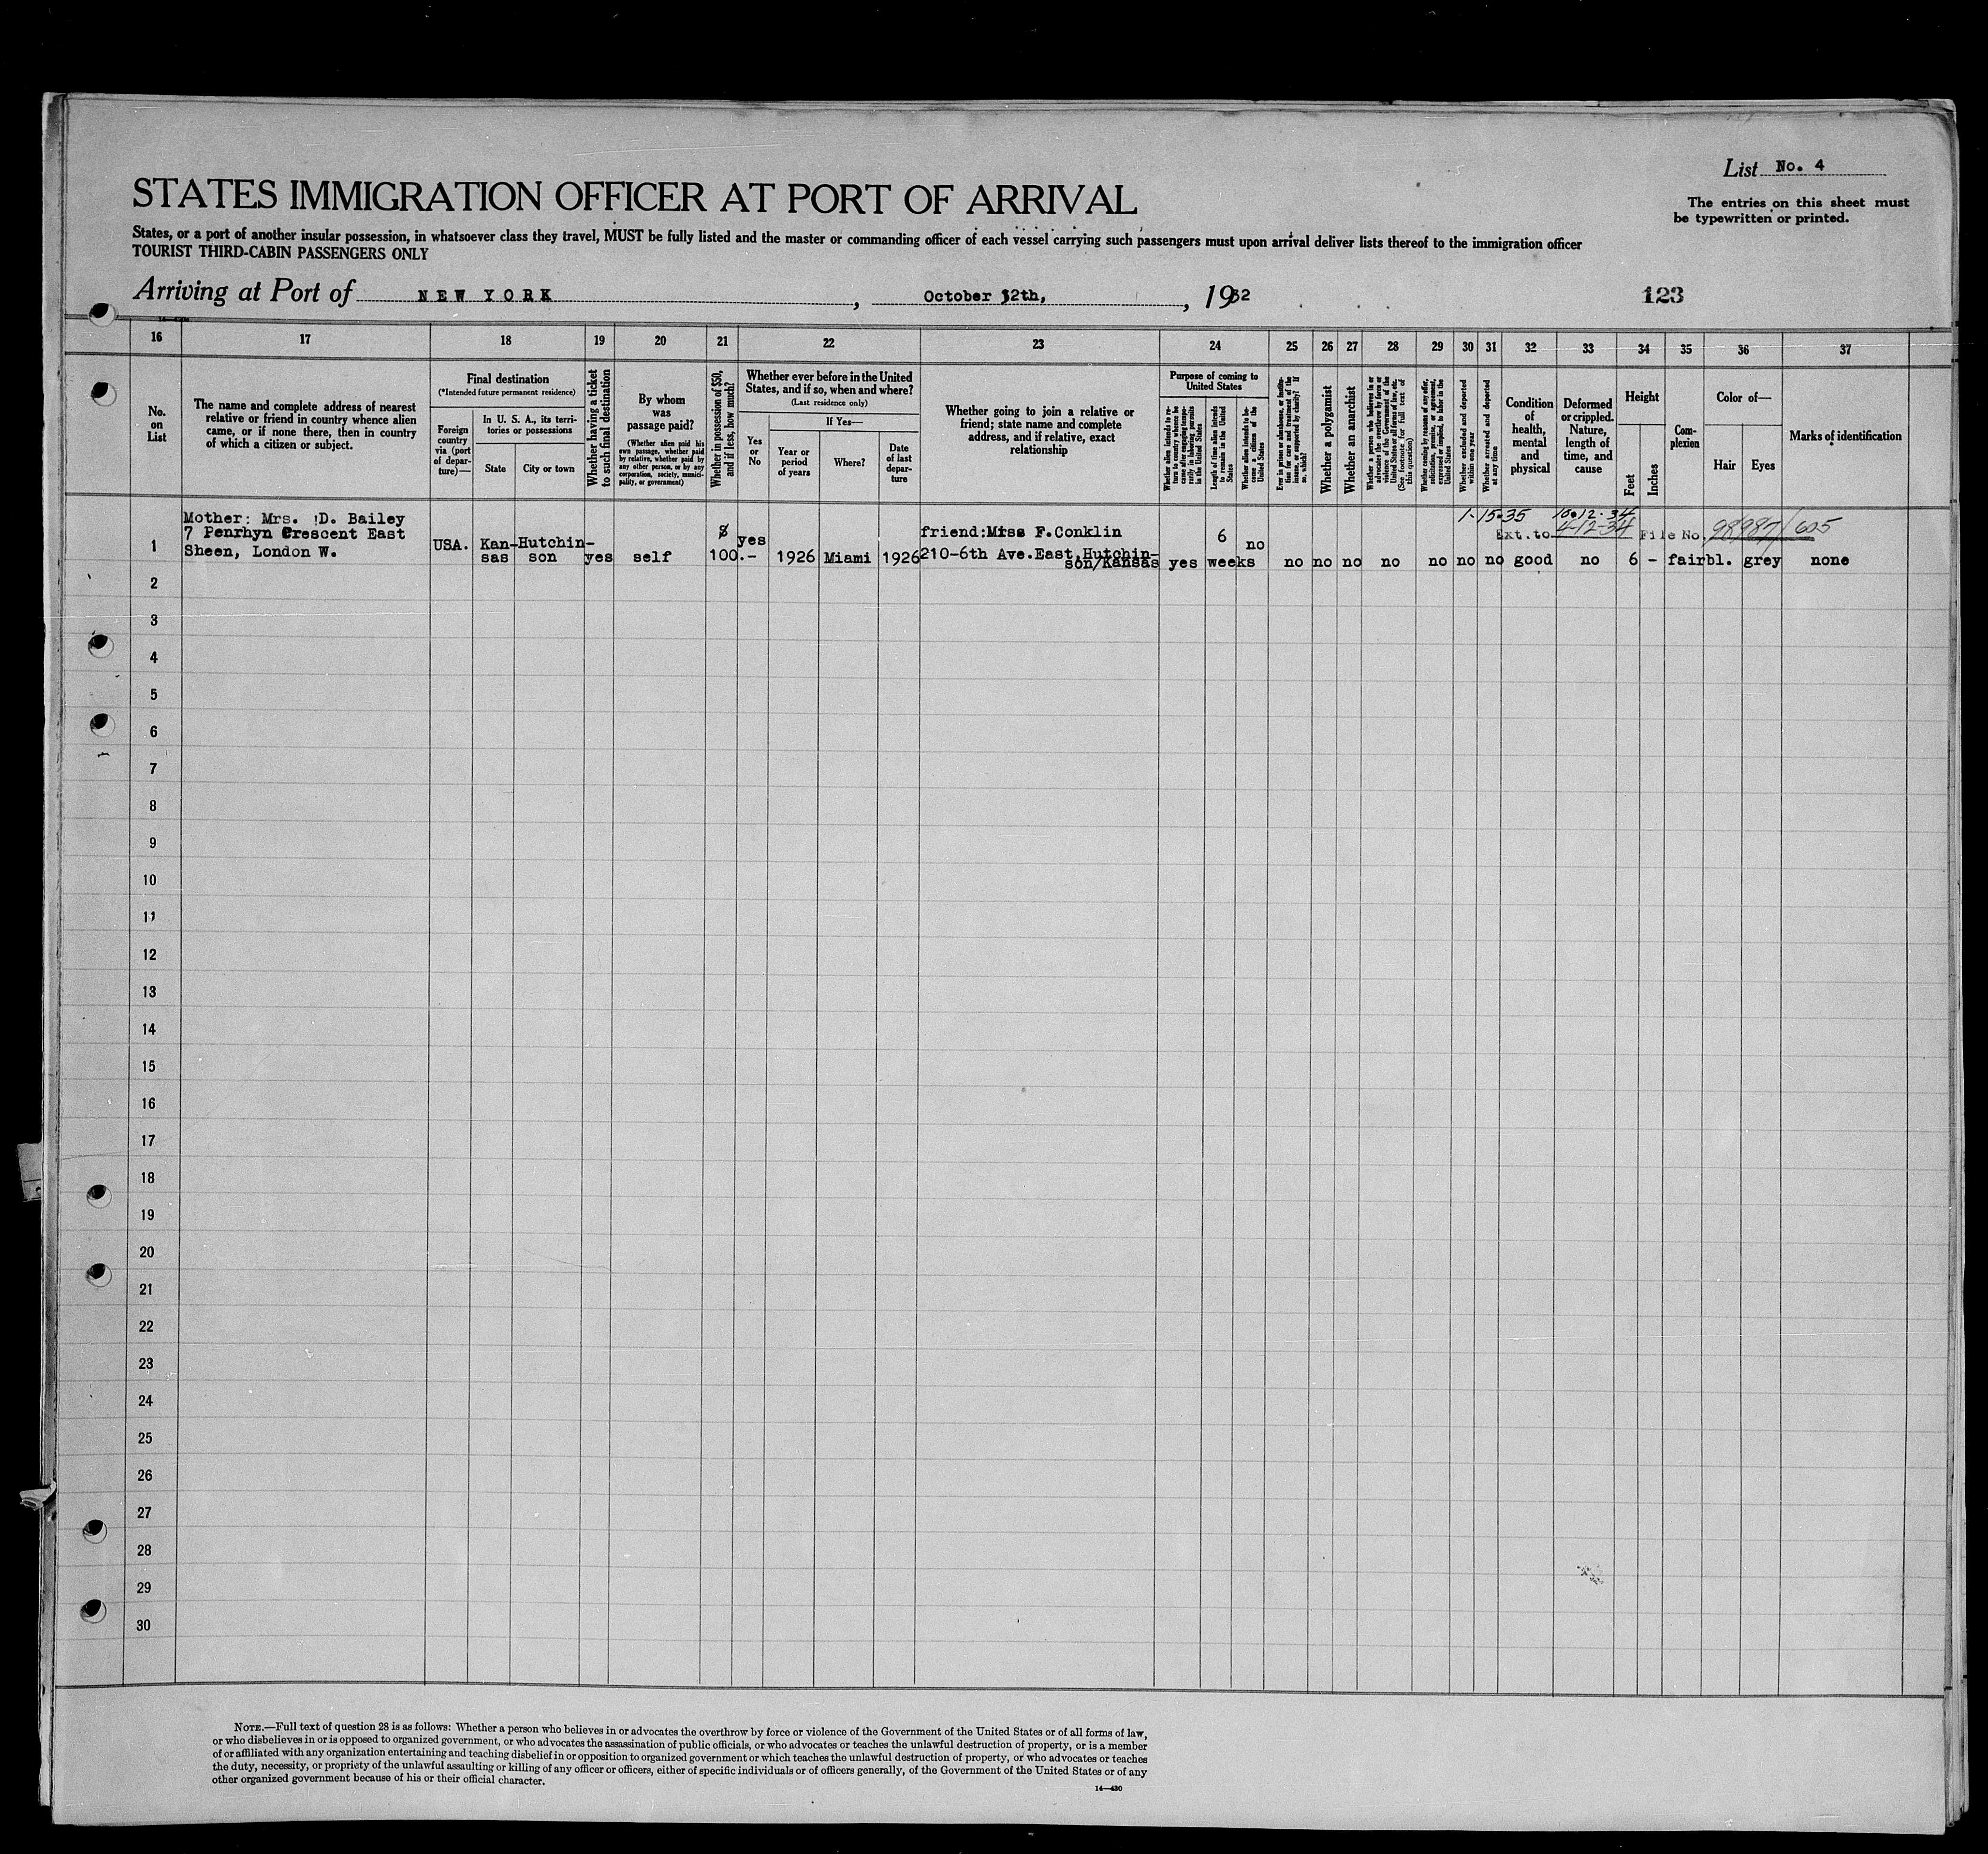 List No. 4
The entries on this sheet must
be typewritten or printed.
STATES IMMIGRATION OFFICER AT PORT OF ARRIVAL
States, or a port of another insular possession, in whatsoever class they travel, MUST be fully listed and the master or commanding officer of each vessel carrying such passengers must upon arrival deliver lists thereof to the immigration officer
TOURIST THIRD-CABIN PASSENGERS ONLY
Arriving at Port of NEW YORK, October 12th, 1932
123
16 17 18 19 20 21 22 23 24 25 26 27 28 29 30 31 32 33 34 35 36 37
No. on List
The name and complete address of nearest
relative or friend in country whence alien
came, or if none there, then in country
of which a citizen or subject.
Final destination
(*Intended future permanent residence)
Foreign
country
via (port
of depar-
ture)—
In U. S. A., its terri-
tories or possessions
State
City or town
Whether having a ticket
to such final destination
By whom
was
passage paid?
(Whether alien paid his
own passage, whether paid
by relative, whether paid by
any other person, or by any
corporation, society, munici-
pality, or government)
Whether in possession of $50,
and if less, how much?
Whether ever before in the United
States, and if so, when and where?
(Last residence only)
Yes
or
No
If Yes—
Year or
period
of years
Where?
Date
of last
depar-
ture
Whether going to join a relative or
friend; state name and complete
address, and if relative, exact
relationship
Purpose of coming to
United States
Whether alien intends to re-
turn to country whence he
came after engaging tempo-
rarily in laboring pursuits
in the United States
Length of time alien intends
to remain in the United
States
Whether alien intends to be-
come a citizen of the
United States
Ever in prison or almshouse, or institu-
tion for care and treatment of the
insane, or supported by charity? If
so, which?
Whether a polygamist
Whether an anarchist
Whether a person who believes in or
advocates the overthrow by force or
violence of the Government of the
United States or all forms of law, etc.
(See footnote for full text of
this question)
Whether coming by reasons of any offer,
solicitation, promise, or agreement,
expressed or implied, to labor in the
United States
Whether excluded and deported
within one year
Whether arrested and deported
at any time
Condition
of
health,
mental
and
physical
Deformed
or crippled.
Nature,
length of
time, and
cause
Height
Feet
Inches
Com-
plexion
Color of—
Hair
Eyes
Marks of identification
1-15-35 10-12-34
Ext. to 4-12-34 File No. 98987/605
1
Mother: Mrs. D. Bailey
7 Penrhyn Crescent East
Sheen, London W.
USA.
Kan-
sas
Hutchin-
son
yes
self
$
100.-
yes
1926
Miami
1926
friend:Miss F.Conklin
210-6th Ave.East,Hutchin-
son/Kansas
yes
6
weeks
no
no no no no no no no good no 6 - fair bl. grey none
2
3
4
5
6
7
8
9
10
11
12
13
14
15
16
17
18
19
20
21
22
23
24
25
26
27
28
29
30
NOTE.—Full text of question 28 is as follows: Whether a person who believes in or advocates the overthrow by force or violence of the Government of the United States or of all forms of law,
or who disbelieves in or is opposed to organized government, or who advocates the assassination of public officials, or who advocates or teaches the unlawful destruction of property, or is a member
of or affiliated with any organization entertaining and teaching disbelief in or opposition to organized government or which teaches the unlawful destruction of property, or who advocates or teaches
the duty, necessity, or propriety of the unlawful assaulting or killing of any officer or officers, either of specific individuals or of officers generally, of the Government of the United States or of any
other organized government because of his or their official character.
14—430